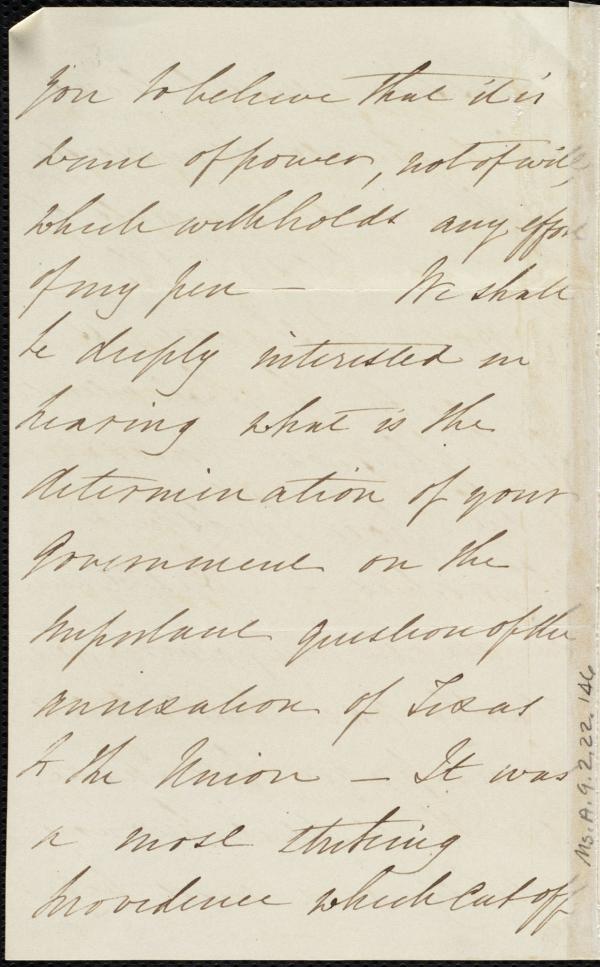 you to believe that it is
want of power, not of will,
which withholds any effort
of my pen — We shall
be deeply interested in
hearing what is the
determination of your
Government on the
important question of the
annexation of Texas
to the Union — It was
a most striking
providence which cut off
Ms. A. 9. 2. 22. 146